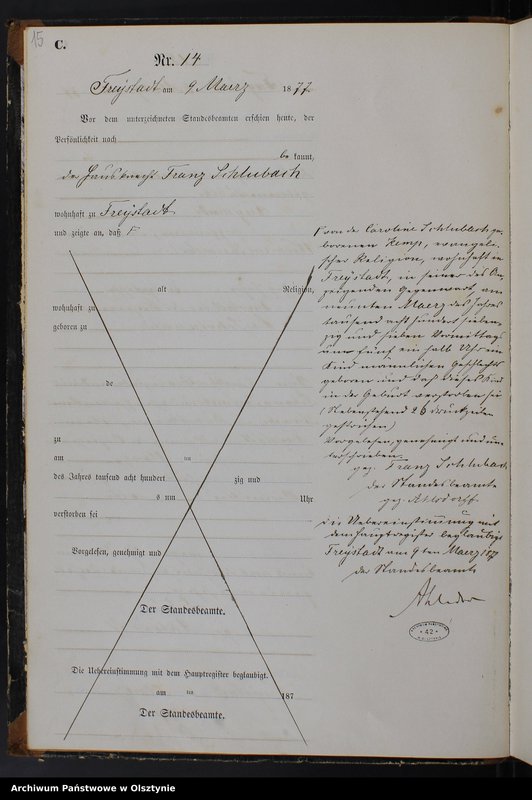 15
C.
Nr. 14
Freystadt am 9 Maerz 1877
Vor dem unterzeichneten Standesbeamten erschien heute, der
Persönlichkeit nach
be kannt,
der Hausknecht Franz Schlubach
wohnhaft zu Freystadt
und zeigte an, daß
alt Religion,
wohnhaft zu
geboren zu
de
zu
am um
des Jahres tausend acht hundert zig und
s um Uhr
verstorben sei
Vorgelesen, genehmigt und
Der Standesbeamte.
Die Uebereinstimmung mit dem Hauptregister beglaubigt.
am ten 187
Der Standesbeamte.
von der Caroline Schlubach ge-
borenen Kemp, evangeli-
scher Religion, wohnhaft in
Freystadt, in seiner des An-
zeigenden Gegenwart am
neunten Maerz des Jahres
tausend acht hundert sieben-
zig und sieben Vormittags
um fünf ein halb Uhr ein
Kind männlichen Geschlechts
geboren und daß dieses Kind
in der Geburt verstorben sei
(Nebenstehend 26 Druckzeilen
gestrichen)
Vorgelesen, genehmigt und un-
terschrieben
gez. Franz Schlubach
der Standesbeamte
gez.
die Uebereinstimmung mit
dem Hauptregister beglaubigt
Freystadt am 9ten Maerz 1877
der Standesbeamte
42
Archiwum Państwowe w Olsztynie